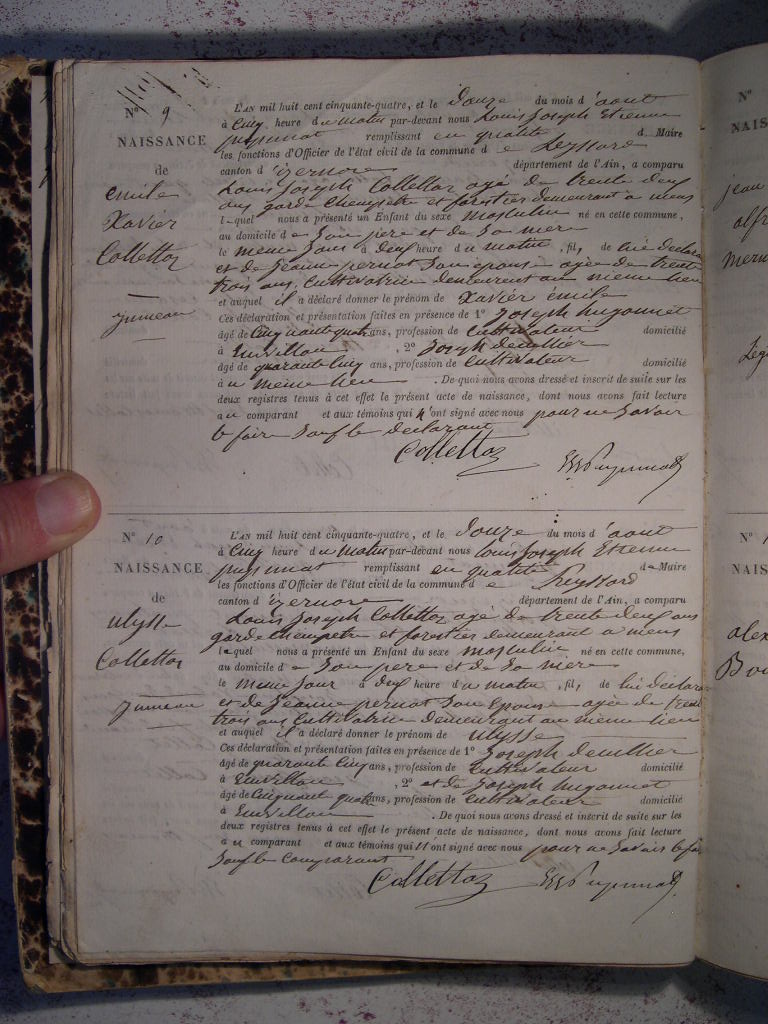 N° 9
NAISSANCE
de
emile
Xavier
Collettaz
jumeau
L'AN mil huit cent cinquante-quatre, et le Douze du mois d'aout
à Cinq heure du matin par-devant nous Louis Joseph Etienne
remplissant en qualité de Maire
les fonctions d'Officier de l'état civil de la commune de Leyssard
canton d'izernore département de l'Ain, a comparu
Louis Joseph Collettaz agé de trente deux
ans garde Champetre et forestier demeurant a
lequel nous a présenté un Enfant du sexe masculin né en cette commune,
au domicile de Son père et de Sa mere
le meme Jour a deux heure du matin, fils de lui déclarant
et de Jeanne pernat Son epouse agée de trente
trois ans, Cultivatrice demeurant au meme lieu
et auquel il a déclaré donner le prénom de Xavier émile
Ces déclaration et présentation faites en présence de 1° Joseph hugonnet
âgé de Cinquante quatre ans, profession de Cultivateur domicilié
à , 2° Joseph
âgé de quarante Cinq ans, profession de Cultivateur domicilié
à u meme lieu . De quoi nous avons dressé et inscrit de suite sur les
deux registres tenus à cet effet le présent acte de naissance, dont nous avons fait lecture
au comparant et aux témoins qui n'ont signé avec nous pour ne Savoir
le faire Sauf le déclarant
Collettaz
N° 10
NAISSANCE
de
ulysse
Collettaz
jumeau
L'AN mil huit cent cinquante-quatre, et le Douze du mois d'aout
à Cinq heure du matin par-devant nous Louis Joseph Etienne
remplissant en qualité de Maire
les fonctions d'Officier de l'état civil de la commune de Leyssard
canton d'izernore département de l'Ain, a comparu
Louis Joseph Collettaz agé de trente deux ans
garde Champetre et forestier demeurant a
lequel nous a présenté un Enfant du sexe masculin né en cette commune,
au domicile de Son pere et de Sa mere
le meme Jour à deux heure du matin, fils de lui déclarant
et de Jeanne pernat Son Epouse agée de trente
trois ans Cultivatrice demeurant au meme lieu
et auquel il a déclaré donner le prénom de ulysse
Ces déclaration et présentation faites en présence de 1° Joseph
âgé de quarante Cinq ans, profession de Cultivateur domicilié
à , 2° et de Joseph hugonnet
âgé de Cinquante quatre ans, profession de Cultivateur domicilié
à . De quoi nous avons dressé et inscrit de suite sur les
deux registres tenus à cet effet le présent acte de naissance, dont nous avons fait lecture
au comparant et aux témoins qui n'ont signé avec nous pour ne Savoir le faire
Sauf le Comparant
Collettaz
N°
NAIS
jean
alfr
N°
NAIS
alex